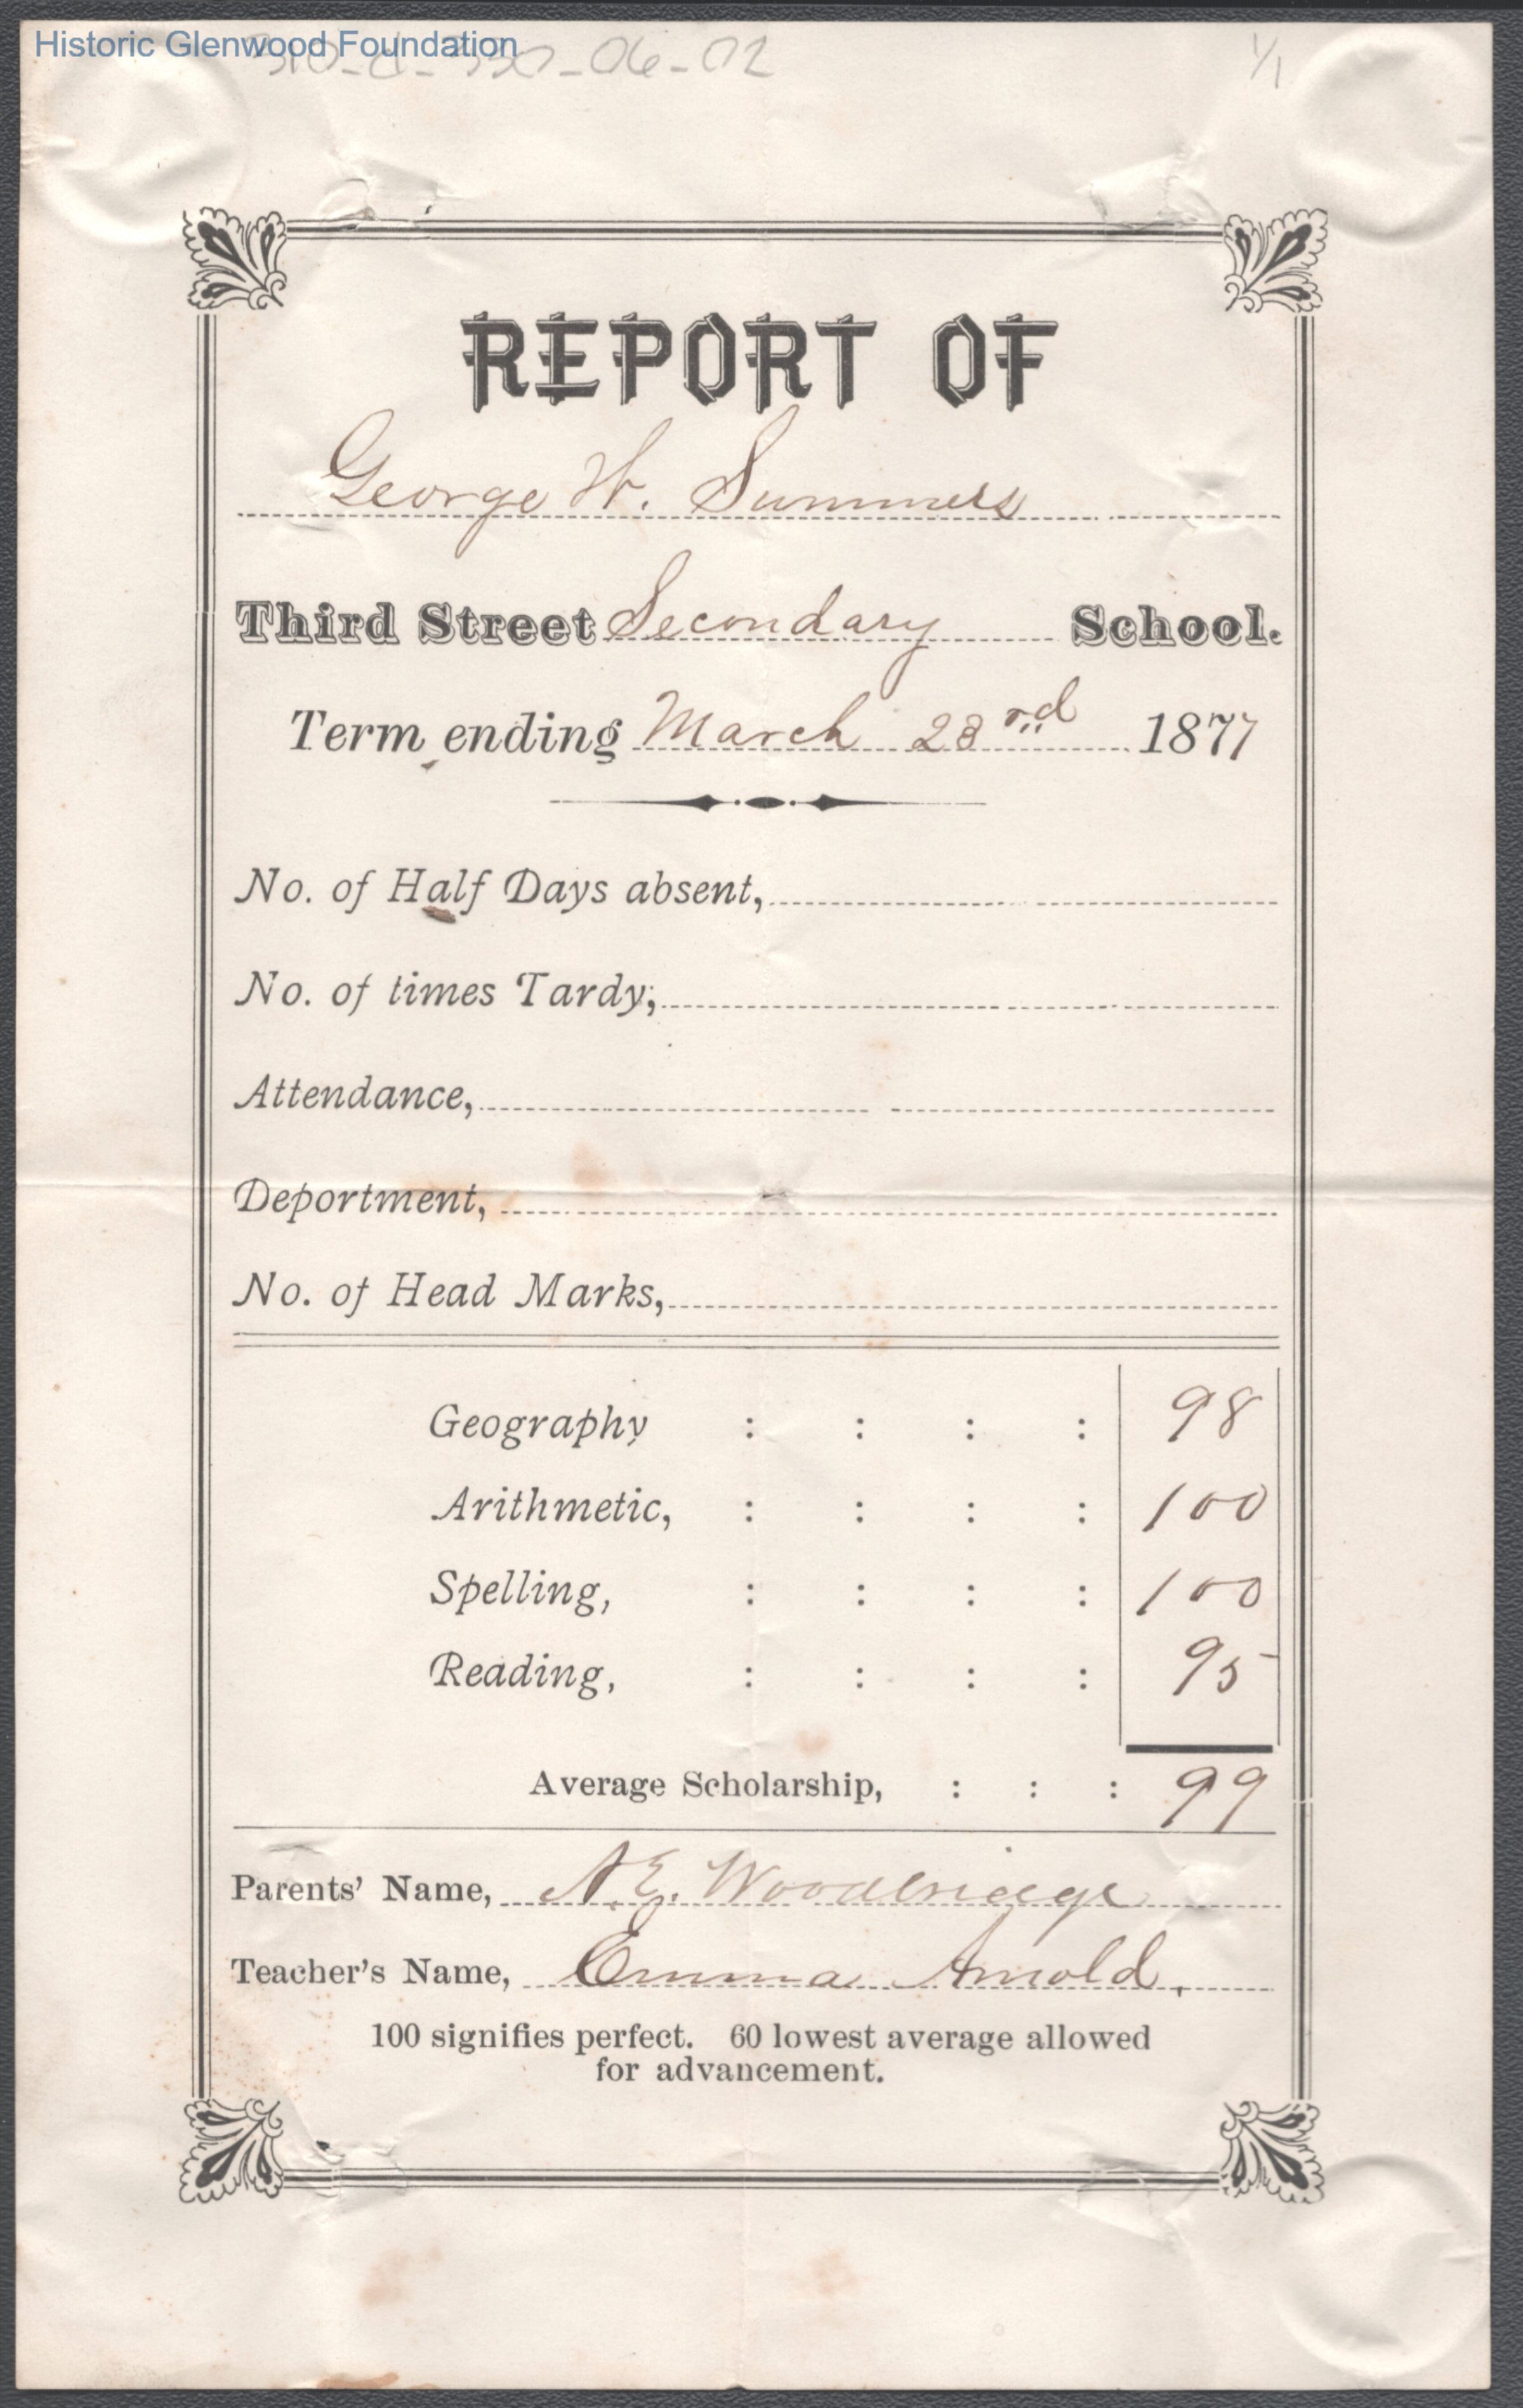 Historic Glenwood Foundation
1/1
REPORT OF
George W. Summers
Third Street Secondary School.
Term ending March 23rd 1877
No. of Half Days absent,
No. of times Tardy,
Attendance,
Deportment,
No. of Head Marks,
Geography : : : : 98
Arithmetic, : : : : 100
Spelling, : : : : 100
Reading, : : : : 95
Average Scholarship, : : : 99
Parents' Name, N.E. Woodbridge
Teacher's Name, Emma Arnold.
100 signifies perfect. 60 lowest average allowed
for advancement.